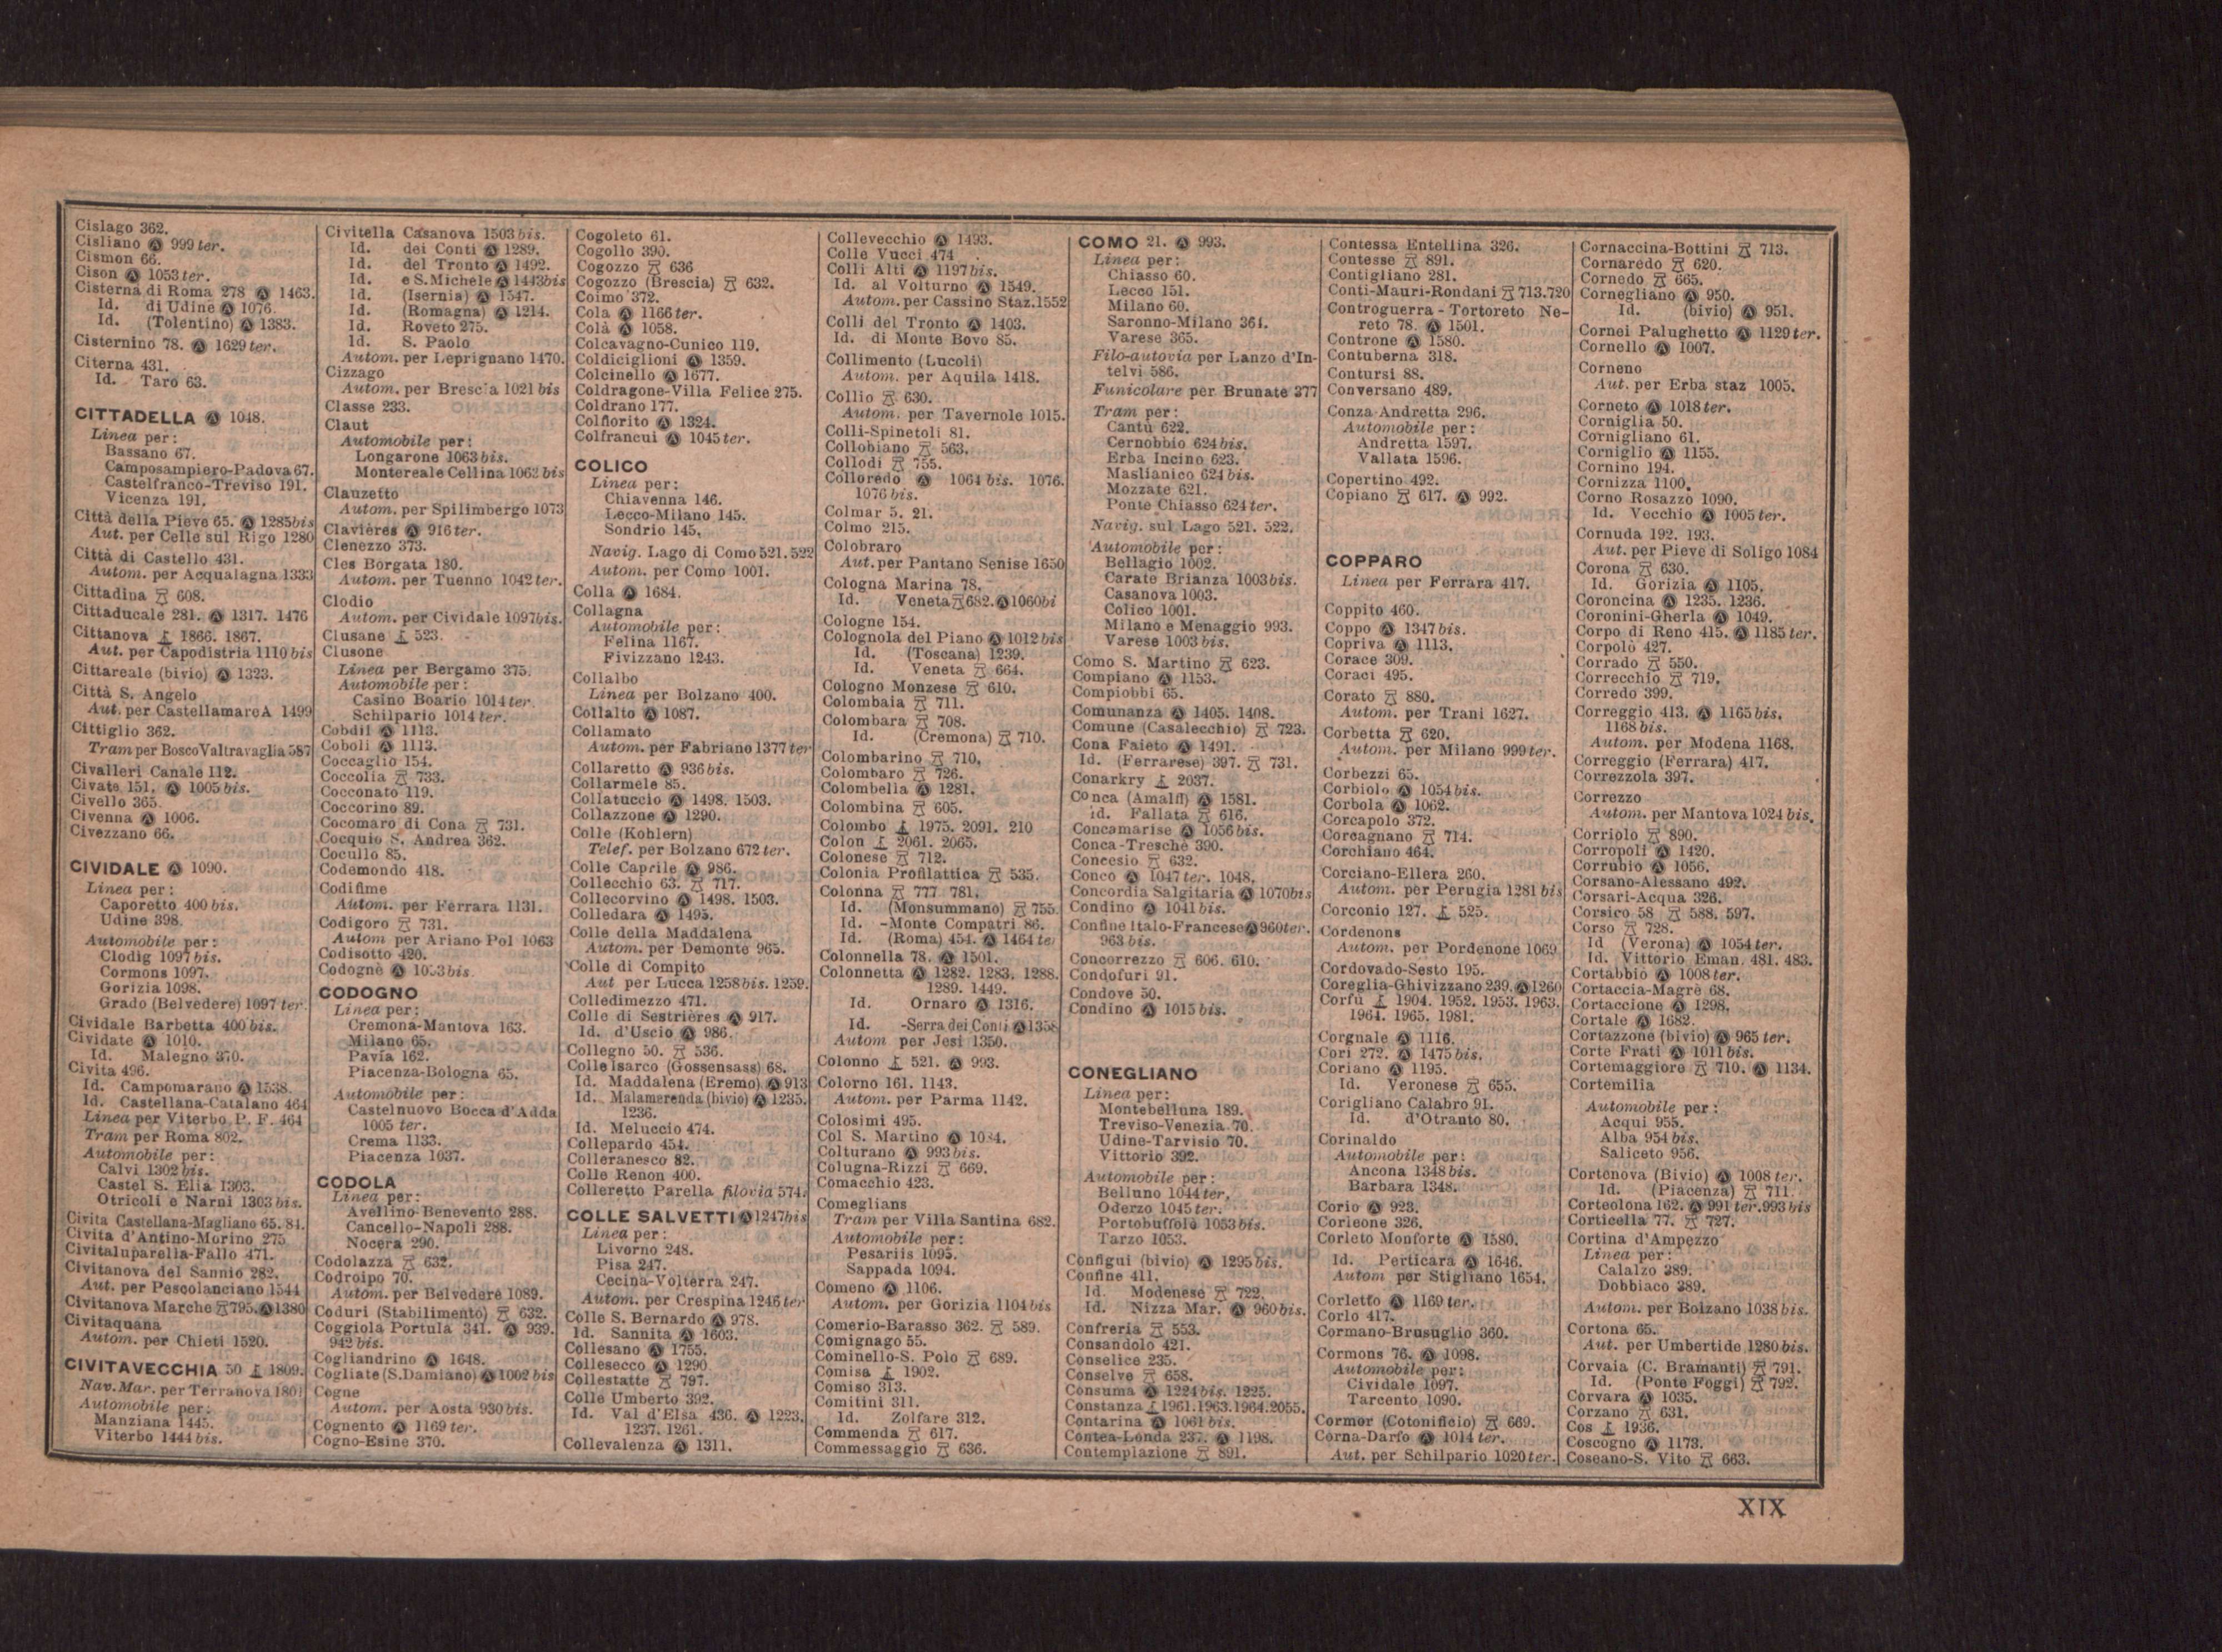 Cislago 362.
Cisliano Ⓐ 999 ter.
Cismon 66.
Cison Ⓐ 1053 ter.
Cisterna di Roma 278 Ⓐ 1463.
Id. di Udine Ⓐ 1076.
Id. (Tolentino) Ⓐ 1383.
Cisternino 78. Ⓐ 1629 ter.
Citerna 431.
Id. Taro 63.
CITTADELLA Ⓐ 1048.
Linea per:
Bassano 67.
Camposampiero-Padova 67.
Castelfranco-Treviso 191.
Vicenza 191.
Città della Pieve 65. Ⓐ 1285 bis
Aut. per Celle sul Rigo 1280
Città di Castello 431.
Autom. per Acqualagna 1333
Cittadina 608.
Cittaducale 281. Ⓐ 1317. 1476
Cittanova 1866. 1867.
Aut. per Capodistria 1110 bis
Cittareale (bivio) Ⓐ 1323.
Città S. Angelo
Aut. per Castellamare A 1499
Cittiglio 362.
Tram per Bosco Valtravaglia 587
Civalleri Canale 112.
Civate 151. Ⓐ 1005 bis.
Civello 365.
Civenna Ⓐ 1006.
Civezzano 66.
CIVIDALE Ⓐ 1090.
Linea per:
Caporetto 400 bis.
Udine 398.
Automobile per:
Clodig 1097 bis.
Cormons 1097.
Gorizia 1098.
Grado (Belvedere) 1097 ter.
Cividale Barbetta 400 bis.
Cividate Ⓐ 1010.
Id. Malegno 370.
Civita 496.
Id. Campomarano Ⓐ 1538.
Id. Castellana-Catalano 464
Linea per Viterbo P. F. 464
Tram per Roma 802.
Automobile per:
Calvi 1302 bis.
Castel S. Elia 1303.
Otricoli e Narni 1303 bis.
Civita Castellana-Magliano 65. 84.
Civita d'Antino-Morino 275
Civitaluparella-Fallo 471.
Civitanova del Sannio 282.
Aut. per Pescolanciano 1544
Civitanova Marche 795. Ⓐ 1380
Civitaquana
Autom. per Chieti 1520.
CIVITAVECCHIA 50 1809.
Nav. Mar. per Terranova 1801
Automobile per:
Manziana 1445.
Viterbo 1444 bis.
Civitella Casanova 1503 bis.
Id. dei Conti Ⓐ 1289.
Id. del Tronto Ⓐ 1492.
Id. e S. Michele Ⓐ 1443 bis
Id. (Isernia) Ⓐ 1547.
Id. (Romagna) Ⓐ 1214.
Id. Roveto 275.
Id. S. Paolo
Autom. per Leprignano 1470.
Cizzago
Autom. per Brescia 1021 bis
Classe 233.
Claut
Automobile per:
Longarone 1063 bis.
Montereale Cellina 1062 bis
Clauzetto
Autom. per Spilimbergo 1073
Clavières Ⓐ 916 ter.
Clenezzo 373.
Cles Borgata 180.
Autom. per Tuenno 1042 ter.
Clodio
Autom. per Cividale 1097 bis.
Clusane 523.
Clusone
Linea per Bergamo 375.
Automobile per:
Casino Boario 1014 ter.
Schilpario 1014 ter.
Cobdil Ⓐ 1113.
Coboli Ⓐ 1113.
Coccaglio 154.
Coccolia 733.
Cocconato 119.
Coccorino 89.
Cocomaro di Cona 731.
Cocquio S. Andrea 362.
Cocullo 85.
Codemondo 418.
Codifime
Autom. per Ferrara 1131.
Codigoro 731.
Autom per Ariano Pol 1063
Codisotto 420.
Codognè Ⓐ bis.
CODOGNO
Linea per:
Cremona-Mantova 163.
Milano 65.
Pavia 162.
Piacenza-Bologna 65.
Automobile per:
Castelnuovo Bocca d'Adda
1005 ter.
Crema 1133.
Piacenza 1037.
CODOLA
Linea per:
Avellino-Benevento 288.
Cancello-Napoli 288.
Nocera 290.
Codolazza 632.
Codroipo 70.
Autom. per Belvedere 1089.
Coduri (Stabilimento) 632.
Coggiola Portula 341. Ⓐ 939.
942 bis.
Cogliandrino Ⓐ 1648.
Cogliate (S. Damiano) Ⓐ 1002 bis
Cogne
Autom. per Aosta 930 bis.
Cognento Ⓐ 1169 ter.
Cogno-Esine 370.
Cogoleto 61.
Cogollo 390.
Cogozzo 636
Cogozzo (Brescia) 632.
Coimo 372.
Cola Ⓐ 1166 ter.
Colà Ⓐ 1058.
Colcavagno-Cunico 119.
Coldiciglioni Ⓐ 1359.
Colcinello Ⓐ 1677.
Coldragone-Villa Felice 275.
Coldrano 177.
Colfiorito Ⓐ 1324.
Colfrancui Ⓐ 1045 ter.
COLICO
Linea per:
Chiavenna 146.
Lecco-Milano 145.
Sondrio 145.
Navig. Lago di Como 521. 522
Autom. per Como 1001.
Colla Ⓐ 1684.
Collagna
Automobile per:
Felina 1167.
Fivizzano 1243.
Collalbo
Linea per Bolzano 400.
Collalto Ⓐ 1087.
Collamato
Autom. per Fabriano 1377 ter
Collaretto Ⓐ 936 bis.
Collarmele 85.
Collatuccio Ⓐ 1498. 1503.
Collazzone Ⓐ 1290.
Colle (Kohlern)
Telef. per Bolzano 672 ter.
Colle Caprile Ⓐ 986.
Collecchio 63. 717.
Collecorvino Ⓐ 1498. 1503.
Colledara Ⓐ 1495.
Colle della Maddalena
Autom. per Demonte 965.
Colle di Compito
Aut per Lucca 1258 bis. 1259.
Colledimezzo 471.
Colle di Sestrières Ⓐ 917.
Id. d'Uscio Ⓐ 986.
Collegno 50. 536.
Colle Isarco (Gossensass) 68.
Id. Maddalena (Eremo) Ⓐ 913
Id. Malamerenda (bivio) Ⓐ 1235.
1236.
Id. Meluccio 474.
Collepardo 454.
Colleranesco 82.
Colle Renon 400.
Colleretto Parella filovia 574.
COLLE SALVETTI Ⓐ 1247 bis
Linea per:
Livorno 248.
Pisa 247.
Cecina-Volterra 247.
Autom. per Crespina 1246 ter
Colle S. Bernardo Ⓐ 978.
Id. Sannita Ⓐ 1603.
Collesano Ⓐ 1755.
Collesecco Ⓐ 1290.
Collestatte 797.
Colle Umberto 392.
Id. Val d'Elsa 436. Ⓐ 1223.
1237. 1261.
Collevalenza Ⓐ 1311.
Collevecchio Ⓐ 1493.
Colle Vucci 474
Colli Alti Ⓐ 1197 bis.
Id. al Volturno Ⓐ 1549.
Autom. per Cassino Staz. 1552
Colli del Tronto Ⓐ 1403.
Id. di Monte Bovo 85.
Collimento (Lucoli)
Autom. per Aquila 1418.
Collio 630.
Autom. per Tavernole 1015.
Colli-Spinetoli 81.
Collobiano 563.
Collodi 755.
Colloredo Ⓐ 1064 bis. 1076.
1076 bis.
Colmar 5. 21.
Colmo 215.
Colobraro
Aut. per Pantano Senise 1650
Cologna Marina 78.
Id. Veneta 682. Ⓐ 1060 bi
Cologne 154.
Colognola del Piano Ⓐ 1012 bis
Id. (Toscana) 1239.
Id. Veneta 664.
Cologno Monzese 610.
Colombaia 711.
Colombara 708.
Id. (Cremona) 710.
Colombarino 710.
Colombaro 726.
Colombella Ⓐ 1281.
Colombina 605.
Colombo 1975. 2091. 210
Colon 2061. 2065.
Colonese 712.
Colonia Profilattica 535.
Colonna 777. 781.
Id. (Monsummano) 755
Id. -Monte Compatri 86.
Id. (Roma) 454. Ⓐ 1464 te
Colonnella 78. Ⓐ 1501.
Colonnetta Ⓐ 1282. 1283. 1288.
1289. 1449.
Id. Ornaro Ⓐ 1316.
Id. -Serra dei Conti Ⓐ 1358
Autom per Jesi 1350.
Colonno 521. Ⓐ 993.
Colorno 161. 1143.
Autom. per Parma 1142.
Colosimi 495.
Col S. Martino Ⓐ
Colturano Ⓐ 993 bis.
Colugna-Rizzi 669.
Comacchio 423.
Comeglians
Tram per Villa Santina 682.
Automobile per:
Pesariis 1095.
Sappada 1094.
Comeno Ⓐ 1106.
Autom. per Gorizia 1104 bis
Comerio-Barasso 362. 589.
Comignago 55.
Cominello-S. Polo 689.
Comisa 1902.
Comiso 313.
Comitini 311.
Id. Zolfare 312.
Commenda 617.
Commessaggio 636.
COMO 21. Ⓐ 993.
Linea per:
Chiasso 60.
Lecco 151.
Milano 60.
Saronno-Milano 361.
Varese 365.
Filo-autovia per Lanzo d'In-
telvi 586.
Funicolare per Brunate 377
Tram per:
Cantù 622.
Cernobbio 624 bis.
Erba Incino 623.
Maslianico 624 bis.
Mozzate 621.
Ponte Chiasso 624 ter.
Navig. sul Lago 521. 522.
Automobile per:
Bellagio 1002.
Carate Brianza 1003 bis.
Casanova 1003.
Colico 1001.
Milano e Menaggio 993.
Varese 1003 bis.
Como S. Martino 623.
Compiano Ⓐ 1153.
Compiobbi 65.
Comunanza Ⓐ 1405. 1408.
Comune (Casalecchio) 723.
Cona Faieto Ⓐ 1491.
Id. (Ferrarese) 397. 731.
Conarkry 2037.
Conca (Amalfi) Ⓐ 1581.
id. Fallata 616.
Concamarise Ⓐ 1056 bis.
Conca-Tresché 390.
Concesio 632.
Conco Ⓐ 1047 ter. 1048.
Concordia Salgitaria Ⓐ 1070 bis
Condino Ⓐ 1041 bis.
Confine Italo-Francese Ⓐ 960 ter.
963 bis.
Concorrezzo 606. 610.
Condofuri 91.
Condove 50.
Condino Ⓐ 1015 bis.
CONEGLIANO
Linea per:
Montebelluna 189.
Treviso-Venezia 70.
Udine-Tarvisio 70.
Vittorio 392.
Automobile per:
Belluno 1044 ter.
Oderzo 1045 ter.
Portobuffolè 1053 bis.
Tarzo 1053.
Configui (bivio) Ⓐ 1295 bis.
Confine 411.
Id. Modenese 722.
Id. Nizza Mar. Ⓐ 960 bis.
Confreria 553.
Consandolo 421.
Conselice 235.
Conselve 658.
Consuma Ⓐ 1224 bis. 1225.
Constanza 1961. 1963. 1964. 2055.
Contarina Ⓐ 1061 bis.
Contea-Londa 237. Ⓐ 1198.
Contemplazione 891.
Contessa Entellina 326.
Contesse 891.
Contigliano 281.
Conti-Mauri-Rondani 713. 720
Controguerra - Tortoreto Ne-
reto 78. Ⓐ 1501.
Controne Ⓐ 1580.
Contuberna 318.
Contursi 88.
Conversano 489.
Conza-Andretta 296.
Automobile per:
Andretta 1597.
Vallata 1596.
Copertino 492.
Copiano 617. Ⓐ 992.
COPPARO
Linea per Ferrara 417.
Coppito 460.
Coppo Ⓐ 1347 bis.
Copriva Ⓐ 1113.
Corace 309.
Coraci 495.
Corato 880.
Autom. per Trani 1627.
Corbetta 620.
Autom. per Milano 999 ter.
Corbezzi 65.
Corbiolo Ⓐ 1054 bis.
Corbola Ⓐ 1062.
Corcapolo 372.
Corcagnano 714.
Corchiano 464.
Corciano-Ellera 260.
Autom. per Perugia 1281 bis
Corconio 127. 525.
Cordenons
Autom. per Pordenone 1069
Cordovado-Sesto 195.
Coreglia-Ghivizzano 239. Ⓐ 1260
Corfù 1904. 1952. 1953. 1963.
1964. 1965. 1981.
Corgnale Ⓐ 1116.
Cori 272. Ⓐ 1475 bis.
Coriano Ⓐ 1195.
Id. Veronese 655.
Corigliano Calabro 91.
Id. d'Otranto 80.
Corinaldo
Automobile per:
Ancona 1348 bis.
Barbara 1348.
Corio Ⓐ 923.
Corleone 326.
Corleto Monforte Ⓐ 1580.
Id. Perticara Ⓐ 1646.
Autom per Stigliano 1654.
Corletto Ⓐ 1169 ter.
Corlo 417.
Cormano-Brusuglio 360.
Cormons 76. Ⓐ 1098.
Automobile per:
Cividale 1097.
Tarcento 1090.
Cormor (Cotonificio) 669.
Corna-Darfo Ⓐ 1014 ter.
Aut. per Schilpario 1020 ter.
Cornaccina-Bottini 713.
Cornaredo 620.
Cornedo 665.
Cornegliano Ⓐ 950.
Id. (bivio) Ⓐ 951.
Cornei Palughetto Ⓐ 1129 ter.
Cornello Ⓐ 1007.
Corneno
Aut. per Erba staz 1005.
Corneto Ⓐ 1018 ter.
Corniglia 50.
Cornigliano 61.
Corniglio Ⓐ 1155.
Cornino 194.
Cornizza 1100.
Corno Rosazzo 1090.
Id. Vecchio Ⓐ 1005 ter.
Cornuda 192. 193.
Aut. per Pieve di Soligo 1084
Corona 630.
Id. Gorizia Ⓐ 1105.
Coroncina Ⓐ 1235. 1236.
Coronini-Gherla Ⓐ 1049.
Corpo di Reno 415. Ⓐ 1185 ter.
Corpolò 427.
Corrado 550.
Correcchio 719.
Corredo 399.
Correggio 413. Ⓐ 1165 bis.
1168 bis.
Autom. per Modena 1168.
Correggio (Ferrara) 417.
Correzzola 397.
Correzzo
Autom. per Mantova 1024 bis.
Corriolo 890.
Corropoli Ⓐ 1420.
Corrubio Ⓐ 1056.
Corsano-Alessano 492.
Corsari-Acqua 326.
Corsico 58 588. 597.
Corso 728.
Id (Verona) Ⓐ 1054 ter.
Id. Vittorio Eman. 481. 483.
Cortabbio Ⓐ 1008 ter.
Cortaccia-Magrè 68.
Cortaccione Ⓐ 1298.
Cortale Ⓐ 1682.
Cortazzone (bivio) Ⓐ 965 ter.
Corte Frati Ⓐ 1011 bis.
Cortemaggiore 710. Ⓐ 1134.
Cortemilia
Automobile per:
Acqui 955.
Alba 954 bis.
Saliceto 956.
Cortenova (Bivio) Ⓐ 1008 ter.
Id. (Piacenza) 711.
Corteolona 162. Ⓐ 991 ter. 993 bis
Corticella 77. 727.
Cortina d'Ampezzo
Linea per:
Calalzo 389.
Dobbiaco 389.
Autom. per Bolzano 1038 bis.
Cortona 65.
Aut. per Umbertide 1280 bis.
Corvaia (C. Bramanti) 791.
Id. (Ponte Foggi) 792.
Corvara Ⓐ 1035.
Corzano 631.
Cos 1936.
Coscogno Ⓐ 1173.
Coseano-S. Vito 663.
XIX